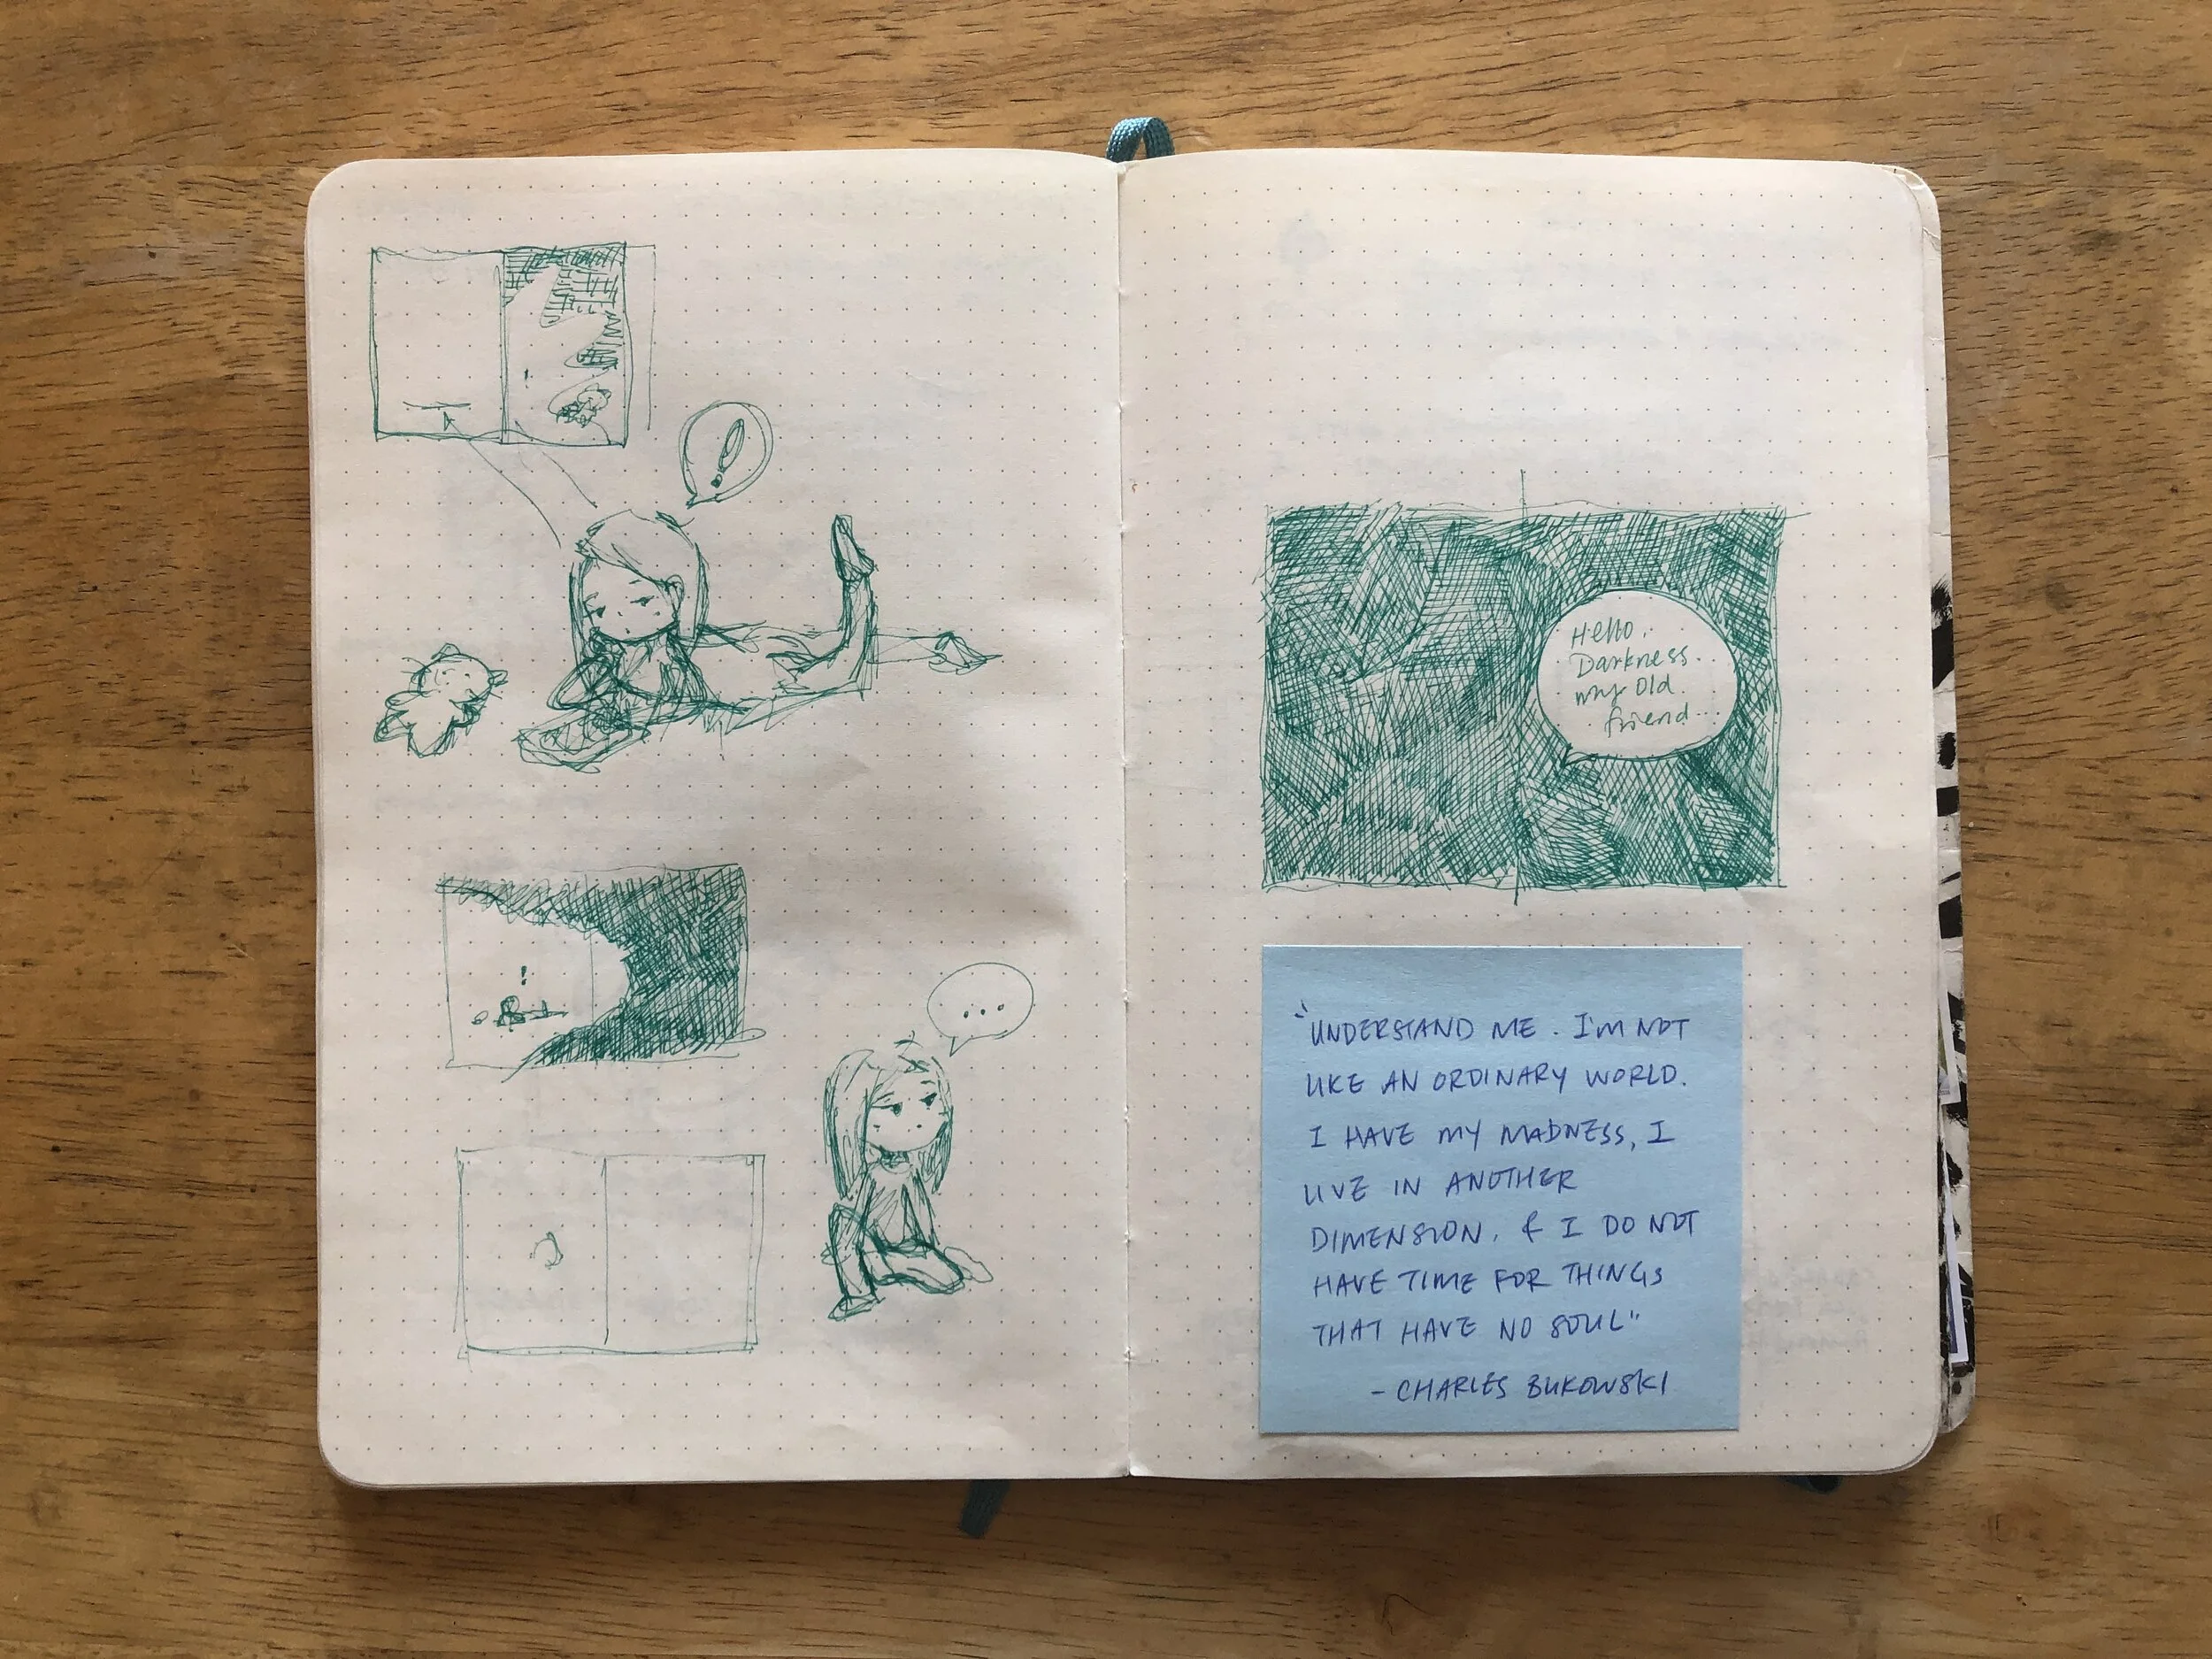 !
!
...
Hello,
Darkness
my old
friend...
"UNDERSTAND ME. I'M NOT
LIKE AN ORDINARY WORLD.
I HAVE MY MADNESS, I
LIVE IN ANOTHER
DIMENSION, & I DO NOT
HAVE TIME FOR THINGS
THAT HAVE NO SOUL"
- CHARLES BUKOWSKI